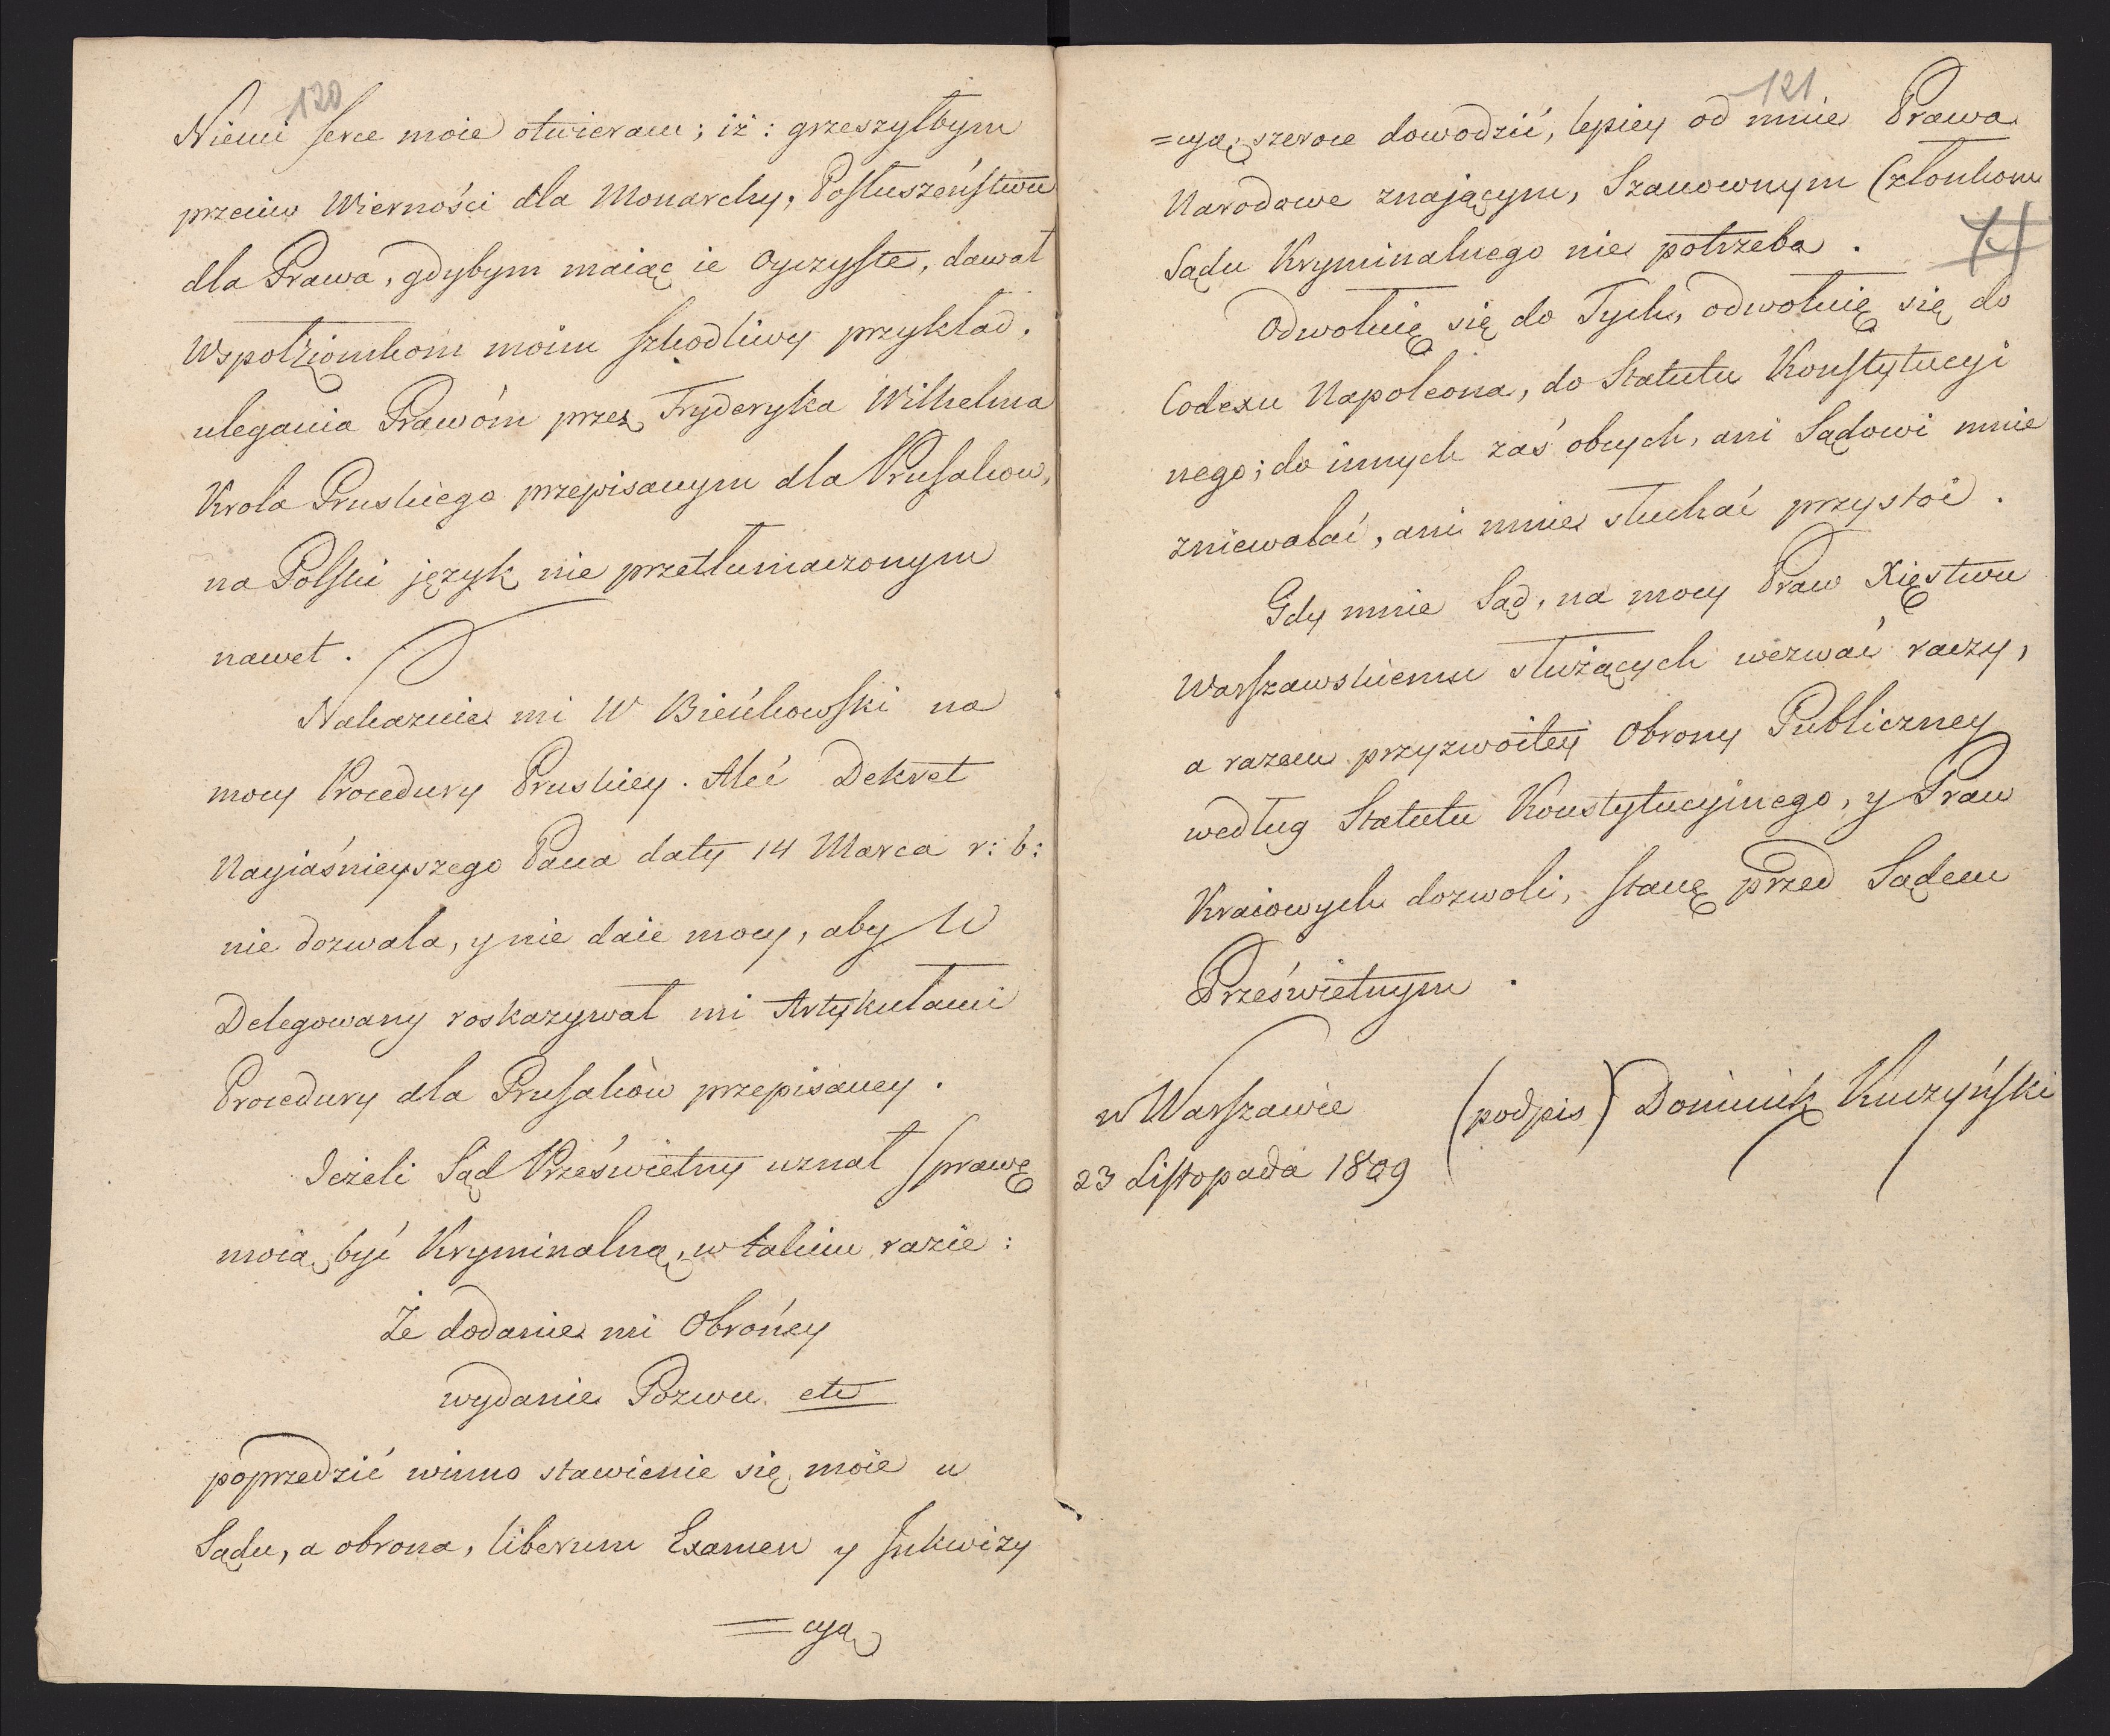 120
Niemi serce moie otwieram; iż: grzeszyłbym
przeciw Wierności dla Monarchy, Posłuszeństwu
dla Prawa, gdybym maiąc ie Oyczyste, dawał
Wspołziomkom moim szkodliwy przykład,
ulegania Prawóm przez Fryderyka Wilhelma
Krola Pruskiego przepisanym dla Prusakow,
na Polski język nie przetłumaczonym
nawet.
Nakaznie mi W Bieńkowski na
mocy Procedury Pruskiey. Aleć Dekret
Nayiaśnieyszego Pana daty 14 Marca r: b:
nie dozwala, y nie daie mocy, aby W
Delegowany roskazywał mi Artykułami
Procedury dla Prusaków przepisaney.
Jeżeli Sąd Prześwietny uznał sprawę
moią być Kryminalną, w takim razie:
Że dodanie mi Obrońcy
wydanie Pozwu etc
poprzedzić winno stawienie się moie u
Sądu, a obrona, liberum Examen y Inkwizy
=cyą
121
=cyą szeroce dowodzić, lepiey od mnie Prawa
Narodowe znającym, Szanownym Członkom
Sądu Kryminalnego nie potrzeba.
Odwołuię się do Tych, odwołuię się do
Codexu Napoleona, do Statutu Konstytucyi
nego; do innych zaś obcych, ani Sądowi mnie
zniewalać, ani mnie słuchać przystoi.
Gdy mnie Sąd, na mocy Praw Xięstwu
Warszawskiemu służących wezwać raczy,
a razem przyzwoitey Obrony Publiczney
według Statutu Konstytucyinego, y Praw
Kraiowych dozwoli, stanę przed Sądem
Prześwietnym.
w Warszawie (podpis) Dominik Kuczyński
23 Listopada 1809